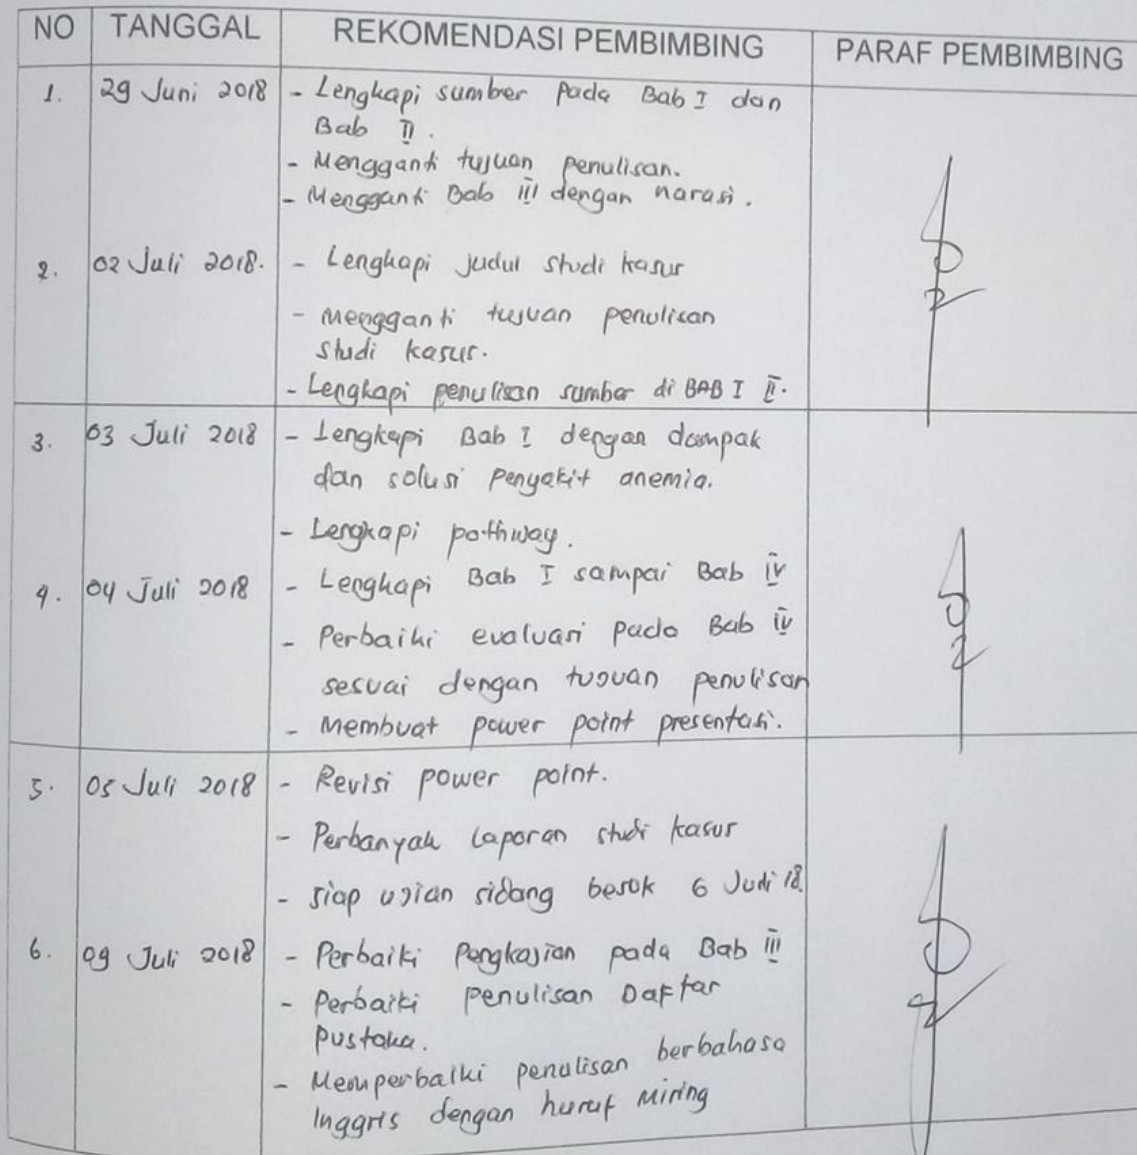 NO TANGGAL REKOMENDASI PEMBIMBING PARAF PEMBIMBING
1. 29 Juni 2018 - Lengkapi sumber pada Bab I dan
Bab II.
- Mengganti tujuan penulisan.
- Mengganti Bab III dengan narasi.
2. 02 Juli 2018. - Lengkapi judul studi kasus
- Mengganti tujuan penulisan
studi kasus.
- Lengkapi penulisan sumber di BAB I II.
3. 03 Juli 2018 - Lengkapi Bab I dengan dampak
dan solusi penyakit anemia.
- Lengkapi pathway.
4. 04 Juli 2018 - Lengkapi Bab I sampai Bab IV
- Perbaiki evaluasi pada Bab IV
sesuai dengan tujuan penulisan
- Membuat power point presentasi.
5. 05 Juli 2018 - Revisi power point.
- Perbanyak laporan studi kasus
- siap ujian sidang besok 6 Judi 18.
6. 09 Juli 2018 - Perbaiki Pengkajian pada Bab III
- Perbaiki penulisan Daftar
pustaka.
- Memperbaiki penulisan berbahasa
Inggris dengan huruf miring